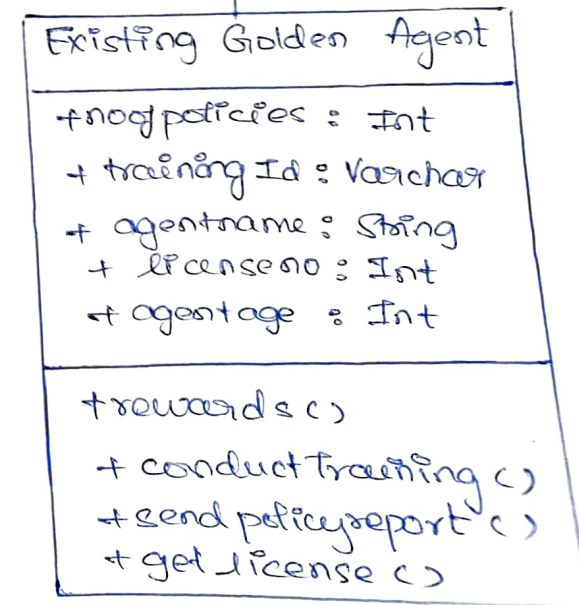 Existing Golden Agent
+noofpolicies : Int
+ training Id : Varchar
+ agentname : String
+ licenseno : Int
+ agentage : Int
+rewards()
+ conductTraining()
+send policyreport()
+ get license()